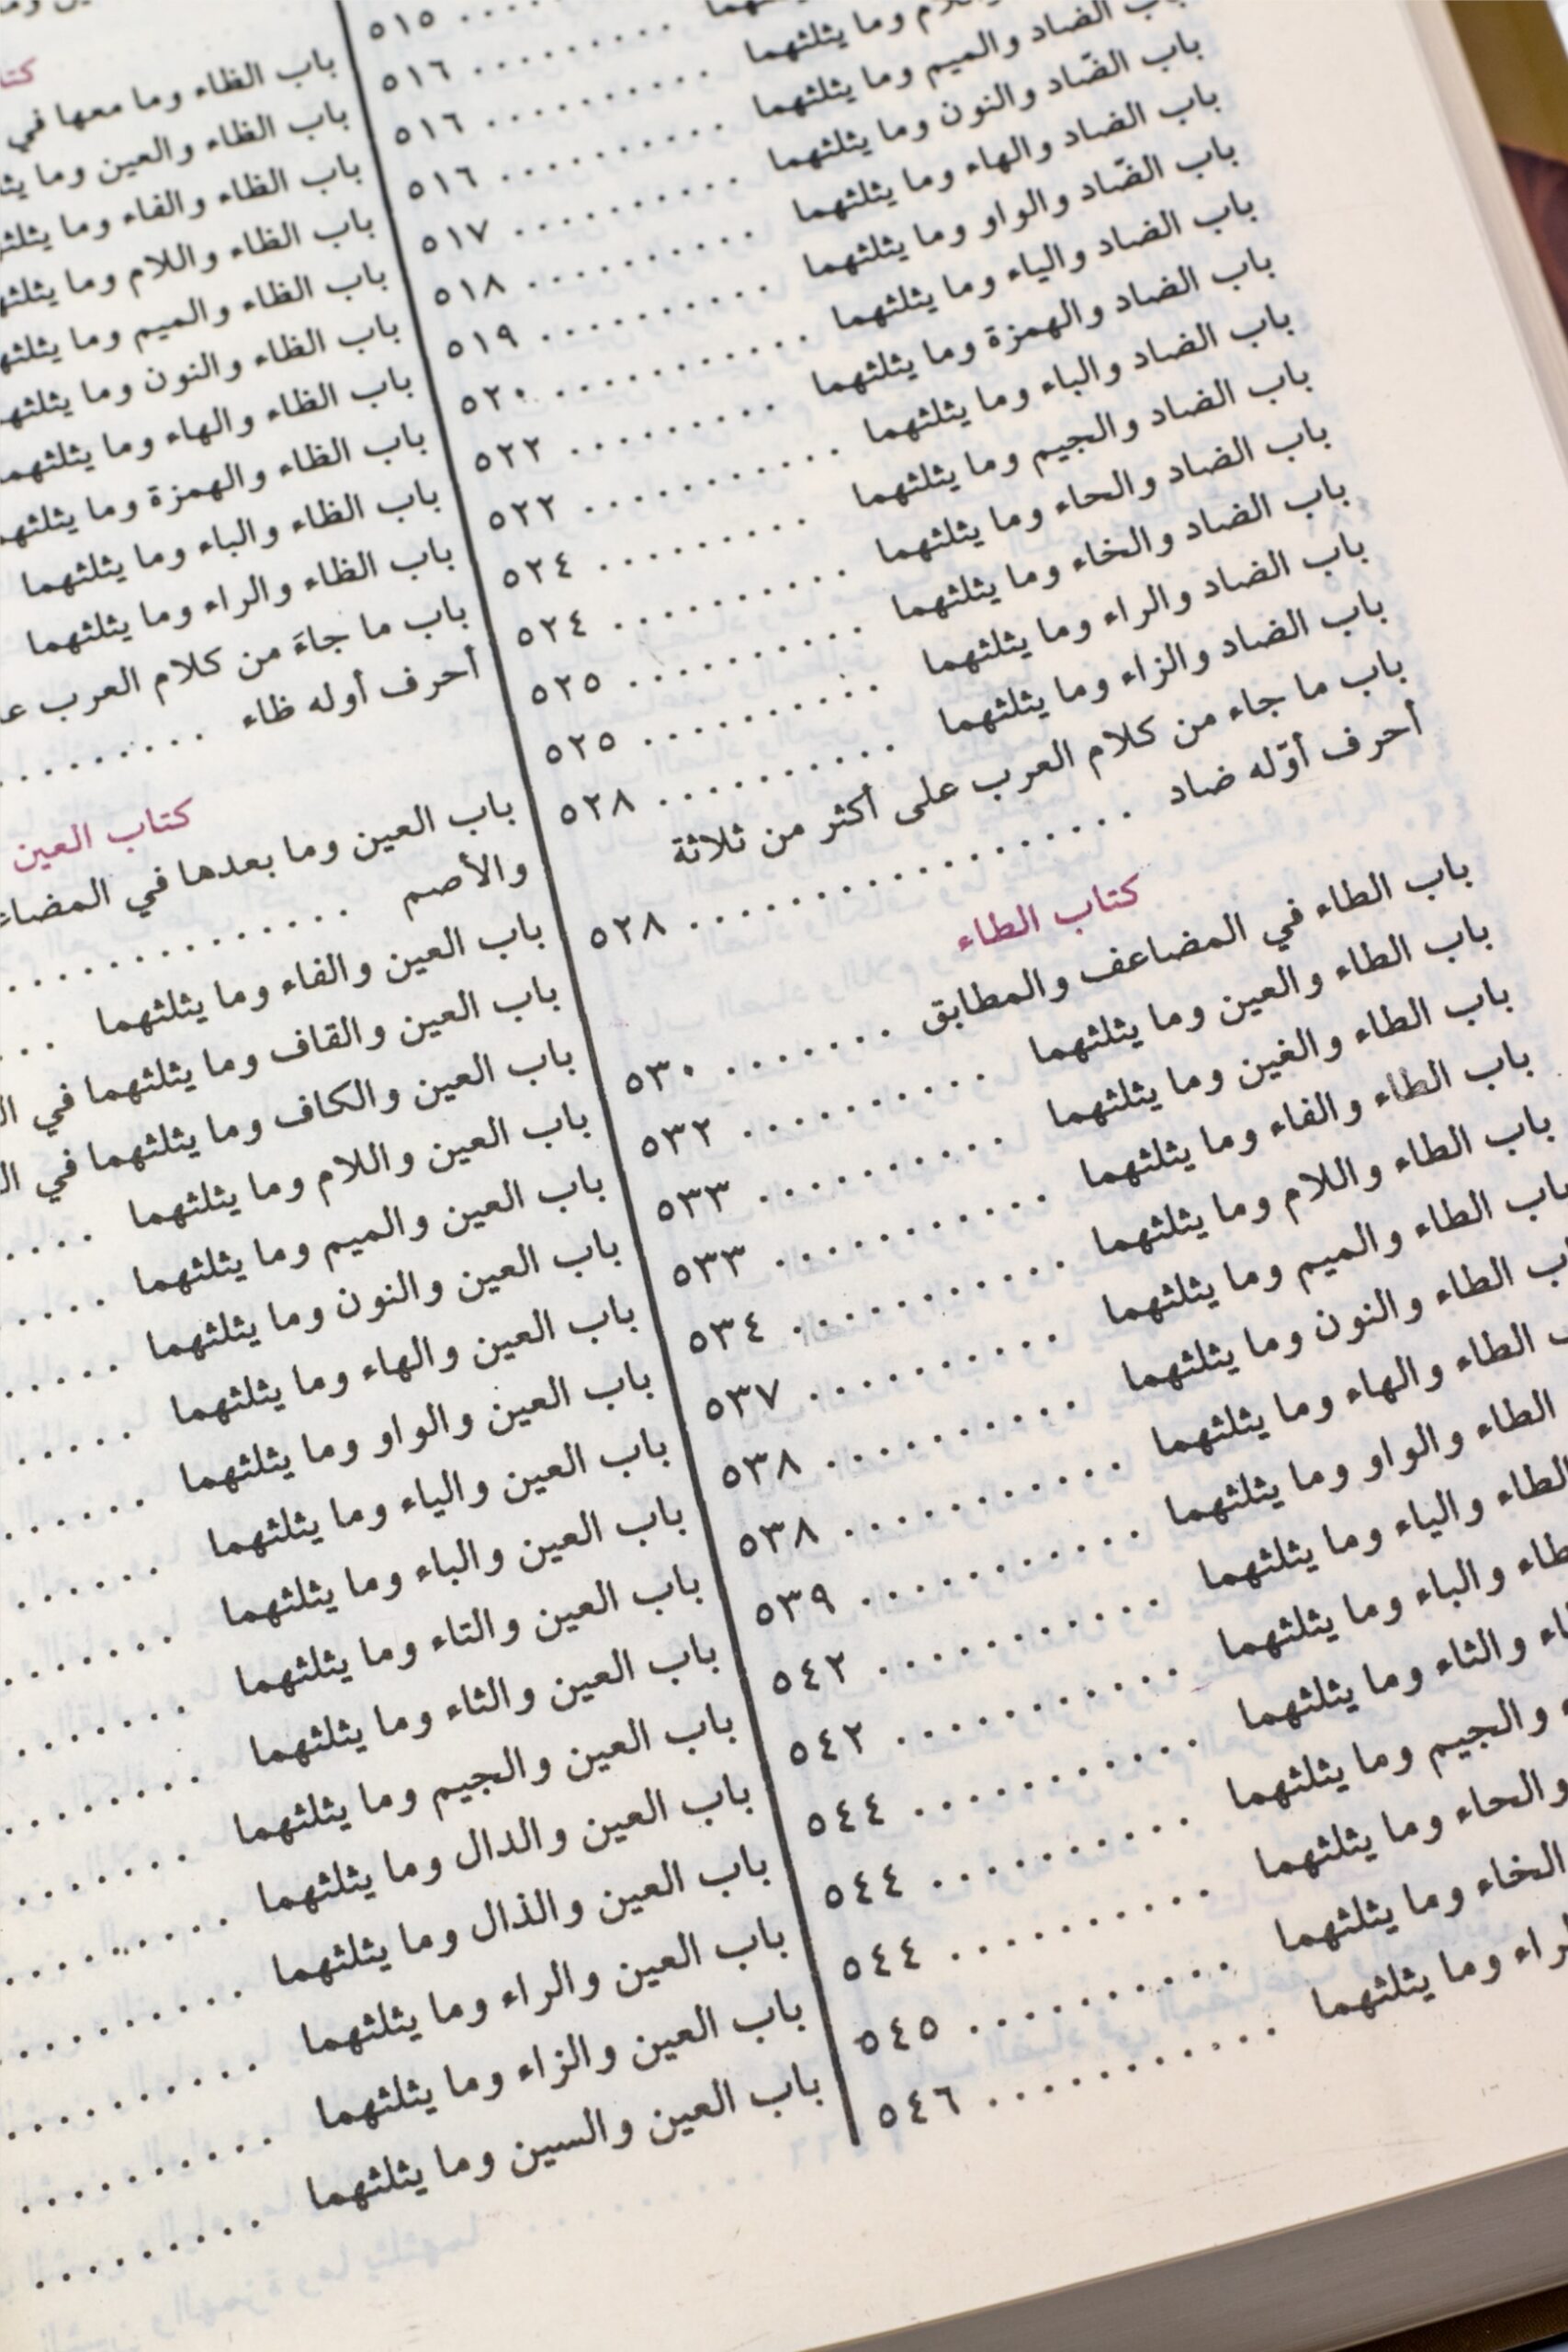 ٥١٥
٥١٦
واللام وما يثلثهما .......... ٥١٦
باب الضاد والميم وما يثلثهما .......... ٥١٦
باب الضّاد والنون وما يثلثهما .......... ٥١٧
باب الضاد والهاء وما يثلثهما .......... ٥١٨
باب الضّاد والواو وما يثلثهما .......... ٥١٩
باب الضاد والياء وما يثلثهما .......... ٥٢٠
باب الضاد والهمزة وما يثلثهما .......... ٥٢٢
باب الضاد والباء وما يثلثهما .......... ٥٢٢
باب الضاد والجيم وما يثلثهما .......... ٥٢٤
باب الضاد والحاء وما يثلثهما .......... ٥٢٤
باب الضاد والخاء وما يثلثهما .......... ٥٢٥
باب الضاد والراء وما يثلثهما .......... ٥٢٥
باب الضاد والزاء وما يثلثهما .......... ٥٢٨
باب ما جاء من كلام العرب على أكثر من ثلاثة
أحرف أوّله ضاد .......... ٥٢٨
كتاب الطاء
باب الطاء في المضاعف والمطابق ....... ٥٣٠
باب الطاء والعين وما يثلثهما .......... ٥٣٢
باب الطاء والغين وما يثلثهما .......... ٥٣٣
باب الطاء والفاء وما يثلثهما .......... ٥٣٣
باب الطاء واللام وما يثلثهما .......... ٥٣٤
باب الطاء والميم وما يثلثهما .......... ٥٣٧
الطاء والنون وما يثلثهما .......... ٥٣٨
الطاء والهاء وما يثلثهما .......... ٥٣٨
الطاء والواو وما يثلثهما .......... ٥٣٩
الطاء والياء وما يثلثهما .......... ٥٤٢
والباء وما يثلثهما .......... ٥٤٢
والثاء وما يثلثهما .......... ٥٤٤
والجيم وما يثلثهما .......... ٥٤٤
والحاء وما يثلثهما .......... ٥٤٤
الخاء وما يثلثهما .......... ٥٤٥
وما يثلثهما .......... ٥٤٦
باب الظاء وما معها في
باب الظاء والعين وما
باب الظاء والفاء وما
باب الظاء واللام وما
باب الظاء والميم وما
باب الظاء والنون وما
باب الظاء والهاء وما يثلثهما
باب الظاء والهمزة وما
باب الظاء والباء وما يثلثهما
باب الظاء والراء وما يثلثهما
باب ما جاءَ من كلام العرب
أحرف أوله ظاء ..........
كتاب العين
باب العين وما بعدها في
والأصم ..........
باب العين والفاء وما يثلثهما ...
باب العين والقاف وما يثلثهما في
باب العين والكاف وما يثلثهما في
باب العين واللام وما يثلثهما ....
باب العين والميم وما يثلثهما .....
باب العين والنون وما يثلثهما .....
باب العين والهاء وما يثلثهما .....
باب العين والواو وما يثلثهما ......
باب العين والياء وما يثلثهما ......
باب العين والباء وما يثلثهما .......
باب العين والتاء وما يثلثهما .......
باب العين والثاء وما يثلثهما ........
باب العين والجيم وما يثلثهما .......
باب العين والدال وما يثلثهما .........
باب العين والذال وما يثلثهما .........
باب العين والراء وما يثلثهما ..........
باب العين والزاء وما يثلثهما ..........
باب العين والسين وما يثلثهما .........